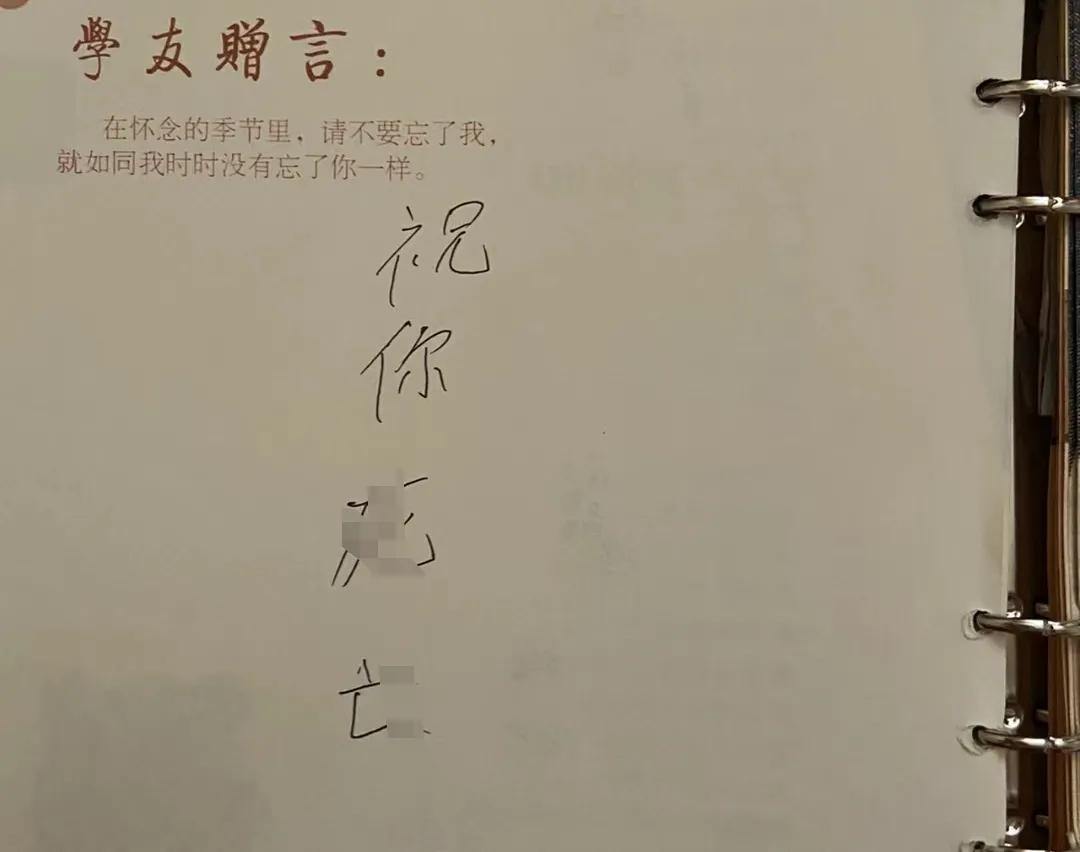 學友贈言：
在怀念的季节里，请不要忘了我，
就如同我时时没有忘了你一样。
祝
你